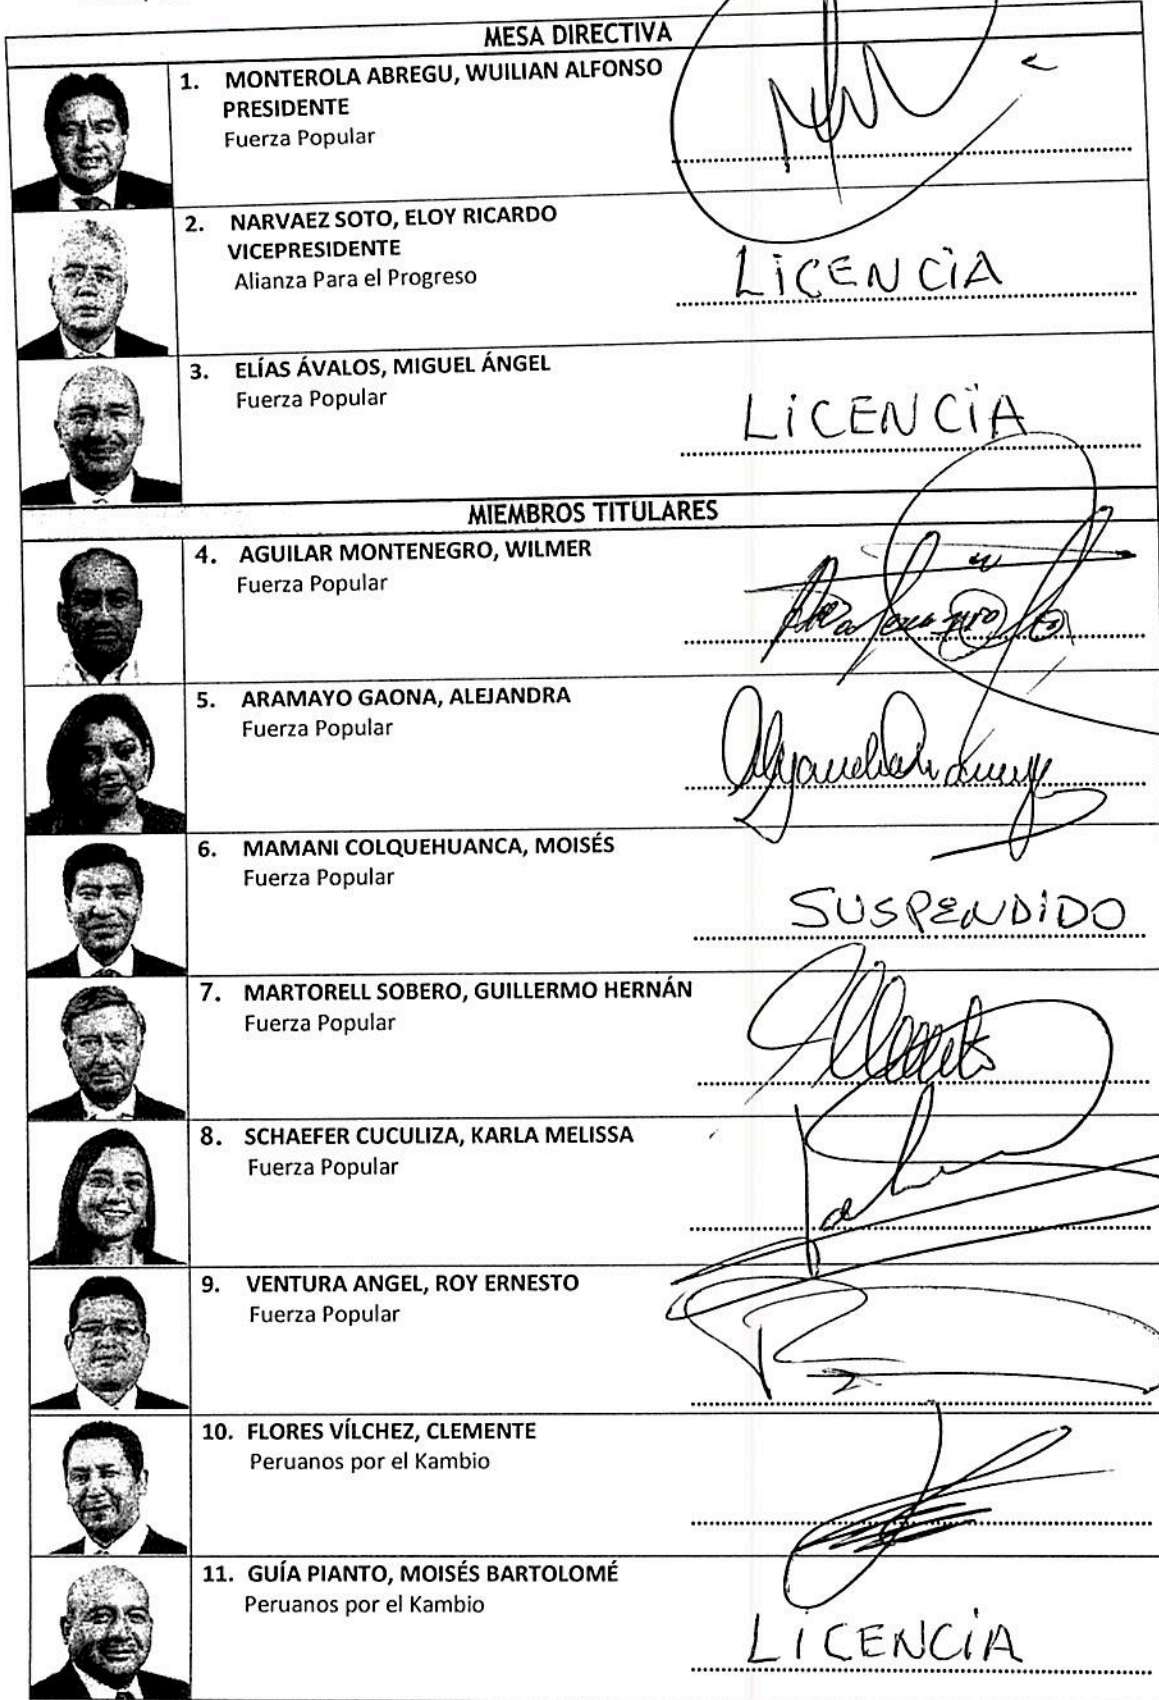 MESA DIRECTIVA
1. MONTEROLA ABREGU, WUILIAN ALFONSO
PRESIDENTE
Fuerza Popular
2. NARVAEZ SOTO, ELOY RICARDO
VICEPRESIDENTE
Alianza Para el Progreso
LICENCIA
3. ELÍAS ÁVALOS, MIGUEL ÁNGEL
Fuerza Popular
LICENCIA
MIEMBROS TITULARES
4. AGUILAR MONTENEGRO, WILMER
Fuerza Popular
5. ARAMAYO GAONA, ALEJANDRA
Fuerza Popular
6. MAMANI COLQUEHUANCA, MOISÉS
Fuerza Popular
SUSPENDIDO
7. MARTORELL SOBERO, GUILLERMO HERNÁN
Fuerza Popular
8. SCHAEFER CUCULIZA, KARLA MELISSA
Fuerza Popular
9. VENTURA ANGEL, ROY ERNESTO
Fuerza Popular
10. FLORES VÍLCHEZ, CLEMENTE
Peruanos por el Kambio
11. GUÍA PIANTO, MOISÉS BARTOLOMÉ
Peruanos por el Kambio
LICENCIA